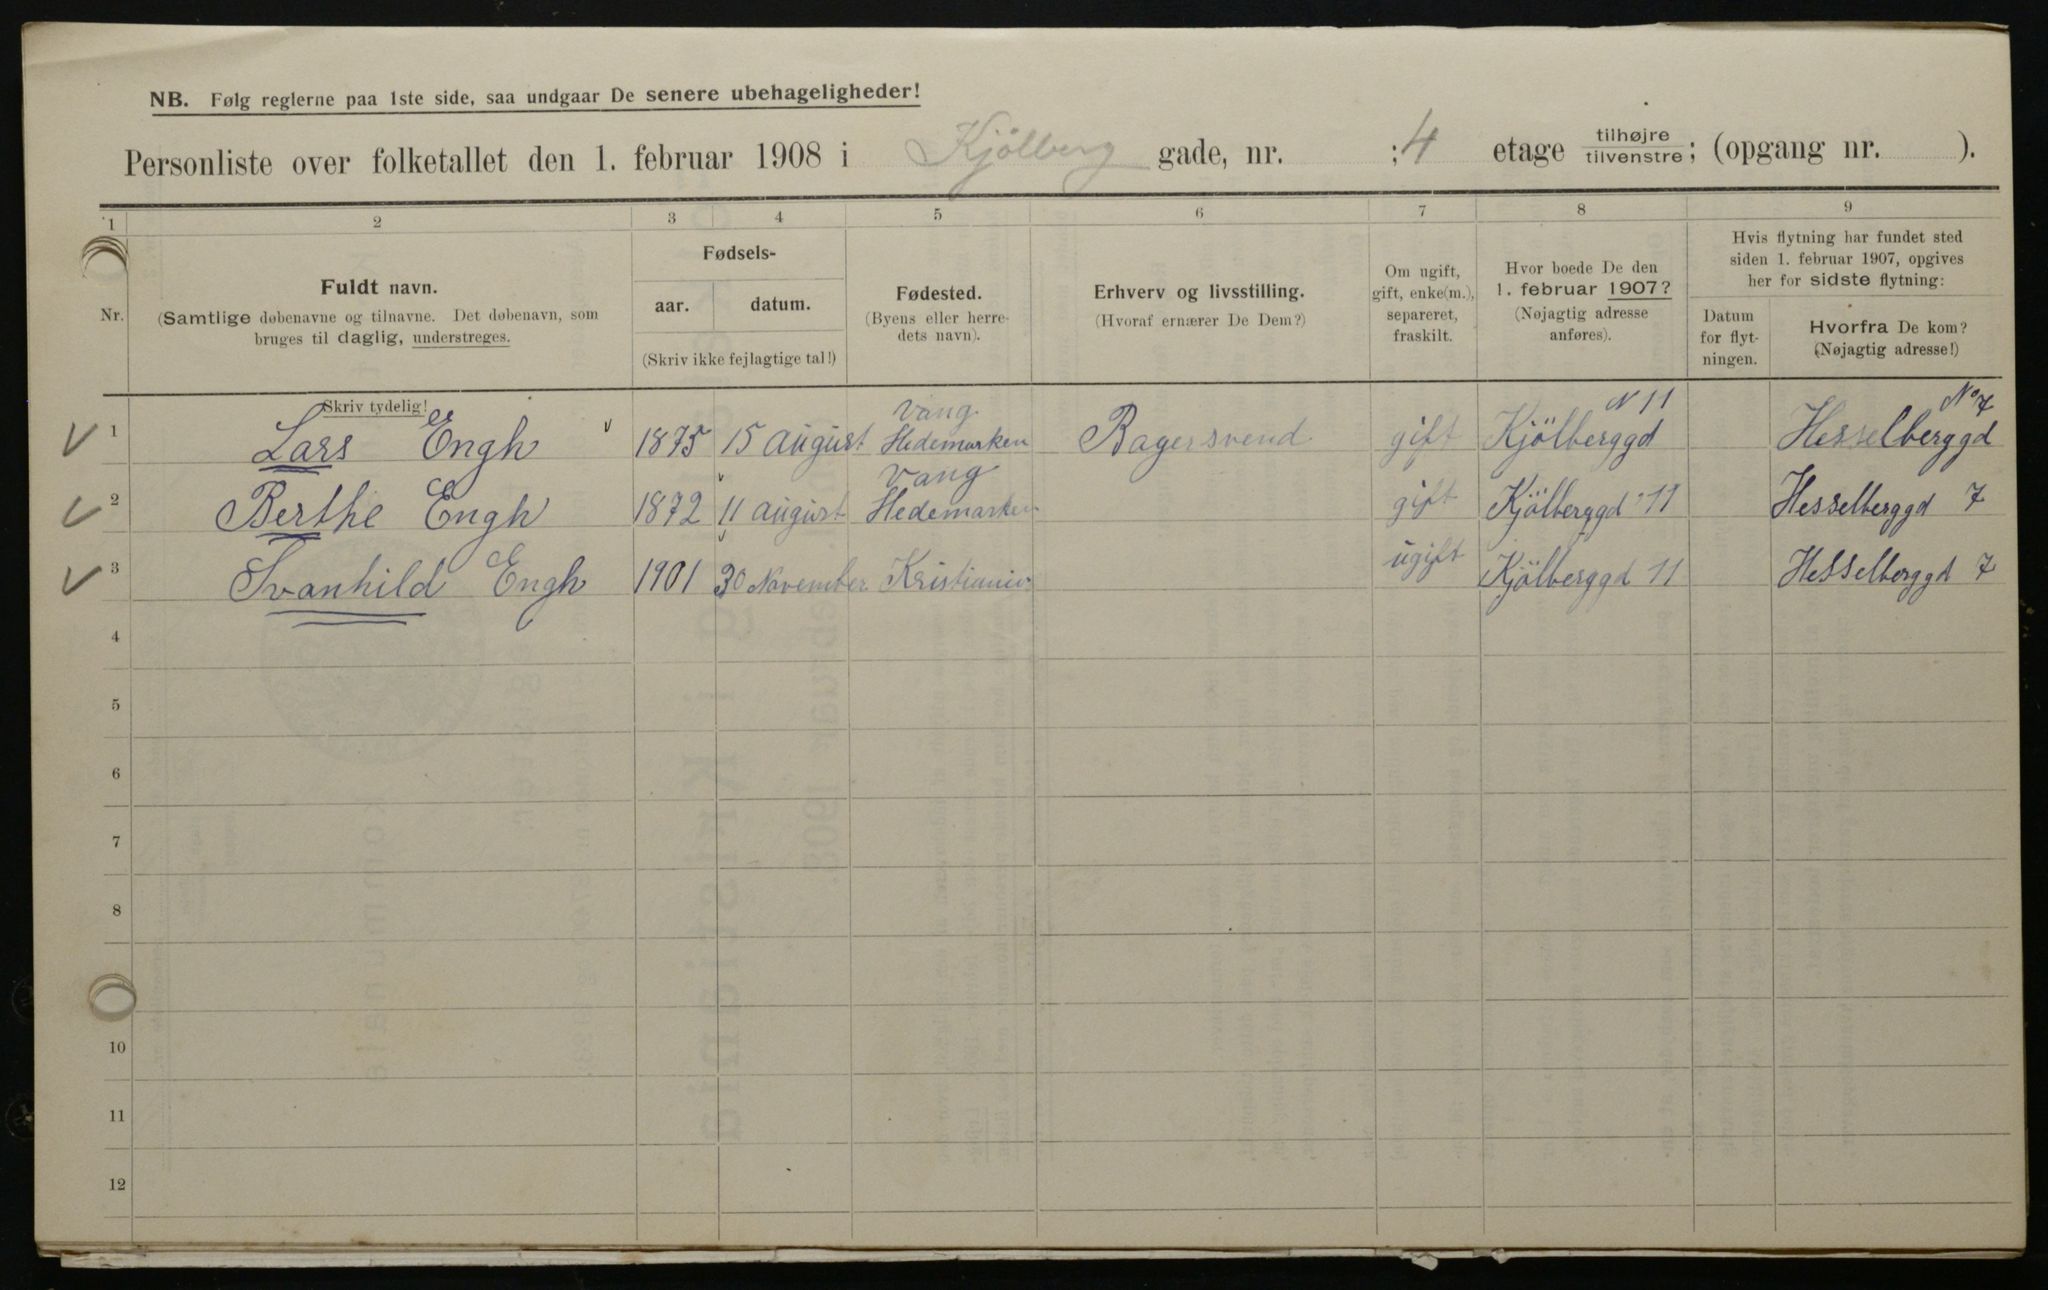 NB. Følg reglerne paa 1ste side, saa undgaar De senere ubehageligheder!
Personliste over folketallet den 1. februar 1908 i Kjölberg gade, nr. ; 4 etage tilhøjre/tilvenstre; (opgang nr. ).
1 2 3 4 5 6 7 8 9
Nr.
Fuldt navn.
(Samtlige døbenavne og tilnavne. Det døbenavn, som
bruges til daglig, understreges.
Fødsels-
aar. datum.
(Skriv ikke fejlagtige tal!)
Fødested.
(Byens eller herre-
dets navn).
Erhverv og livsstilling.
(Hvoraf ernærer De Dem?)
Om ugift,
gift, enke(m.),
separeret,
fraskilt.
Hvor boede De den
1. februar 1907?
(Nøjagtig adresse
anføres).
Hvis flytning har fundet sted
siden 1. februar 1907, opgives
her for sidste flytning:
Datum
for flyt-
ningen.
Hvorfra De kom?
(Nøjagtig adresse!)
Skriv tydelig!
Vang N 11 No 7
1 Lars Engh 1875 15 august Hedemarken Bagersvend gift Kjölberggd Hesselberggd
Vang
2 Berthe Engh 1872 11 august Hedemarken gift Kjölberggd 11 Hesselberggd 7
3 Svanhild Engh 1901 30 November Kristiania ugift Kjölberggd 11 Hesselberggd 7
4
5
6
7
8
10
11
12